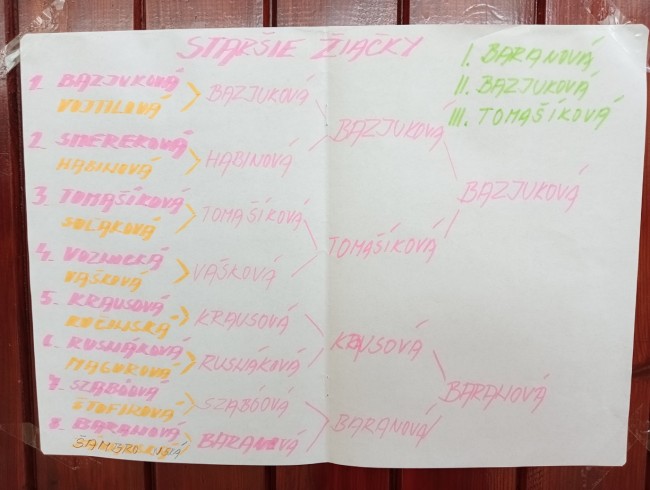 STARŠIE ŽIAČKY
1. BAZJUKOVÁ
VOJTILOVÁ
2. SMEREKOVÁ
HABINOVÁ
3. TOMAŠÍKOVÁ
SOĽÁKOVÁ
4. VOZNICKÁ
VAŠKOVÁ
5. KRAUSOVÁ
KUČINSKÁ
6. RUSNÁKOVÁ
MAGUROVÁ
7. SZABÓOVÁ
ŠTOFIROVÁ
8. BARANOVÁ
BAZJUKOVÁ
HABINOVÁ
TOMAŠÍKOVÁ
VAŠKOVÁ
KRAUSOVÁ
RUSNÁKOVÁ
SZABÓOVÁ
BARANOVÁ
BAZJUKOVÁ
TOMAŠÍKOVÁ
KRAUSOVÁ
BARANOVÁ
BAZJUKOVÁ
BARANOVÁ
I. BARANOVÁ
II. BAZJUKOVÁ
III. TOMAŠÍKOVÁ